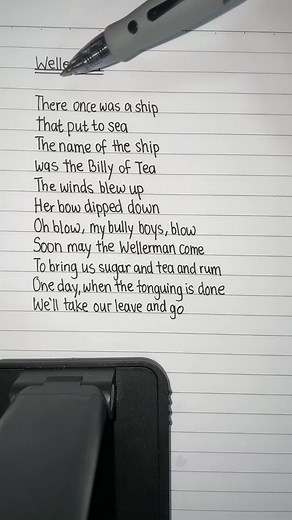 Welle
There once was a ship
That put to sea
The name of the ship
was the Billy of Tea
The winds blew up
Her bow dipped down
Oh blow, my bully boys, blow
Soon may the Wellerman come
To bring us sugar and tea and rum
One day, when the tonguing is done
We'll take our leave and go